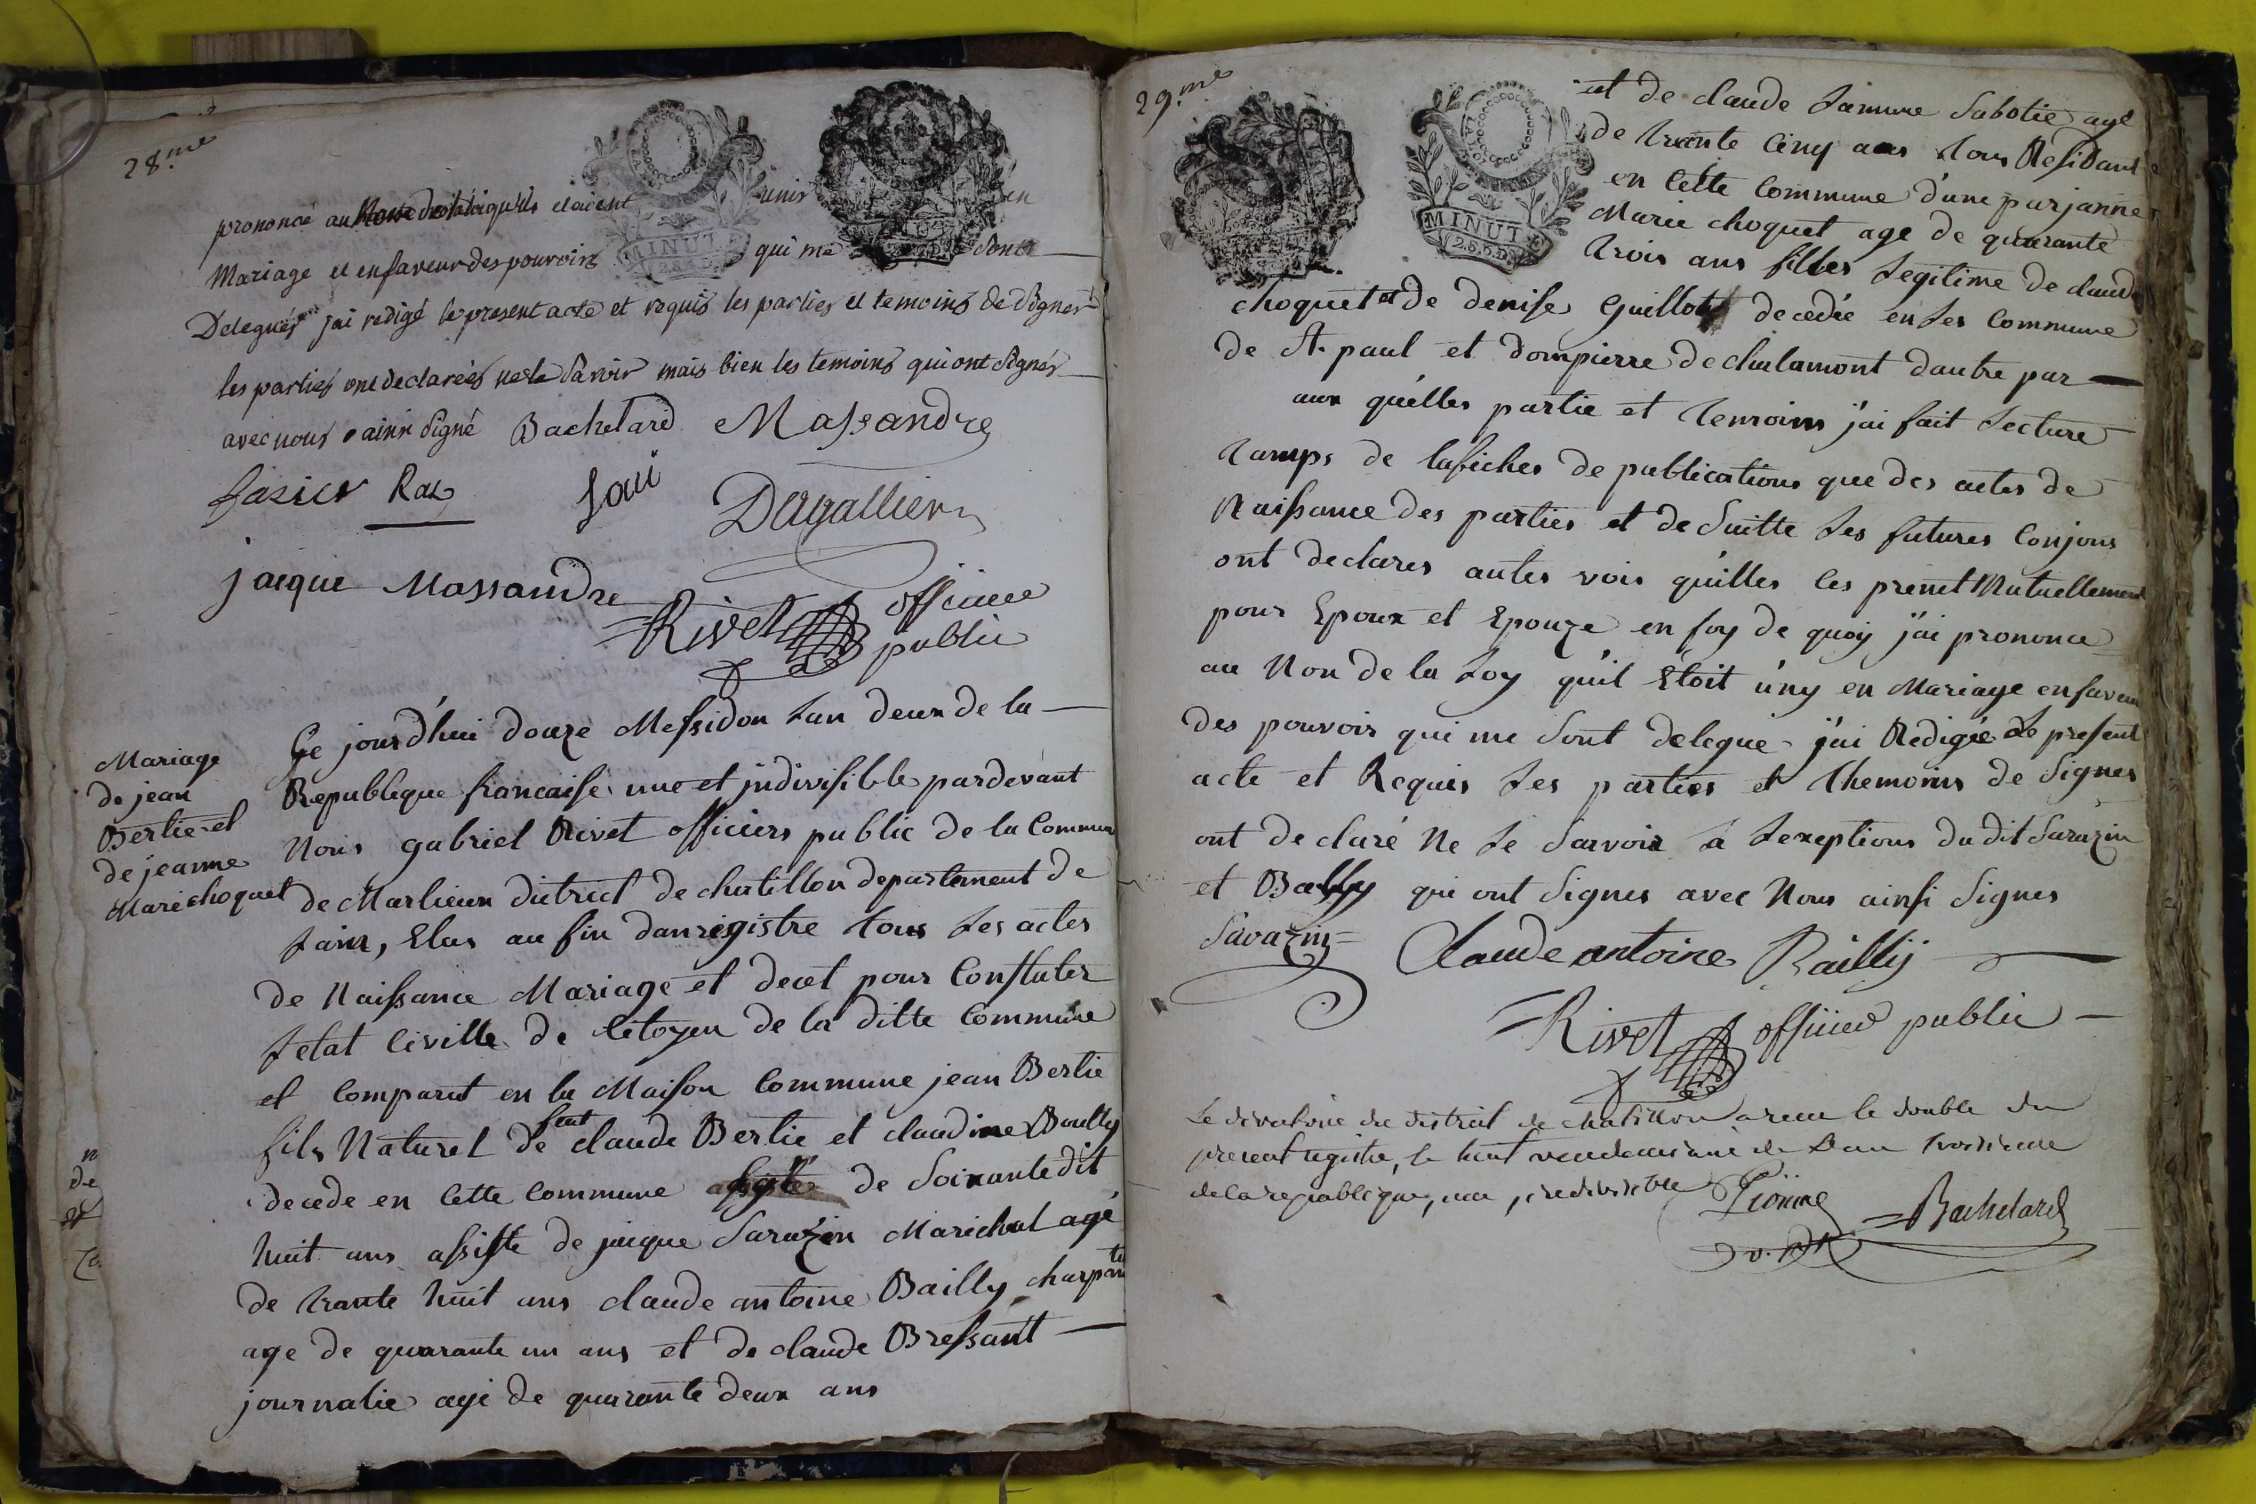 28.me
prononcé au qu'ils etaient unis en
Mariage et en faveur des pouvoirs qui me sont
Delegués j'ai redigé le present acte et requis les parties et temoins de signer
les parties ont declarées ne le savoir mais bien les temoins qui ont signés
avec nous ainsi signé Bachelard Massandre
fazier Rat Jaui Dagallier
jacque Massandre
Rivet officier
public
Mariage
de jean
Bertie et
de jeanne
Marichoquet
Ce jourd'hui douze Messidon Lan deux de la
Republeque francaise une et jndivisible pardevant
Nous gabriel Rivet officiers public de la Commune
de Marlieux dictrict de chatillon departement de
Lain, Elus au fin danregistre tous Les actes
de Naissance Mariage et decet pour Constater
Letat Civille de Citoyen de la ditte Commune
et Comparut en la Maison Commune jean Bertie
fils Naturel de feut claude Bertie et claudine Boully
decede en Cette Commune de Soixante dit
huit ans assiste de jaique Sarazin Marichal agé
de trante huit ans claude antoine Bailly charpantie
age de quarante un ans et de claude Bressant
journalie agé de quarante deux ans
29.me
MINUTE
12.S.6.D.
et de claude Jamure Sabotie agé
de trante Cinq ans tous Residant
en Cette Commune d'une par janne
Marie choquet age de quarante
trois ans filles Legitime de claude
choquet et de denise Guillot decedée en Les Commune
de St. paul et dompierre de chalamont dautre par
aux quélles partie et temoins j'ai fait Lecture
tamps de lafiches de publications que des actes de
Naissance des parties et de Suitte Les futures Conjous
ont declares autes vois quilles Ces prenet Mutuellement
pour Epoux et Epouze en foy de quoy j'ai prononce
au Non de la Loy quil Etoit úny en Mariage en faveur
des pouvoir qui me Sont delegue j'ai Redigée Le present
acte et Requis Les parties et themoins de Signes
ont declaré Ne Le Sarvoir a Lexeptions du dit Sarazin
et Bailly qui ont Signes avec Nous ainsi Signes
Sarazin Claude antoine Bailly
Rivet officier public
Le directoire du district de chatillon a recu le double du
present registre, le huit vendemiaire de Lan troisieme
de la republique, une, indivisible
Bachelard